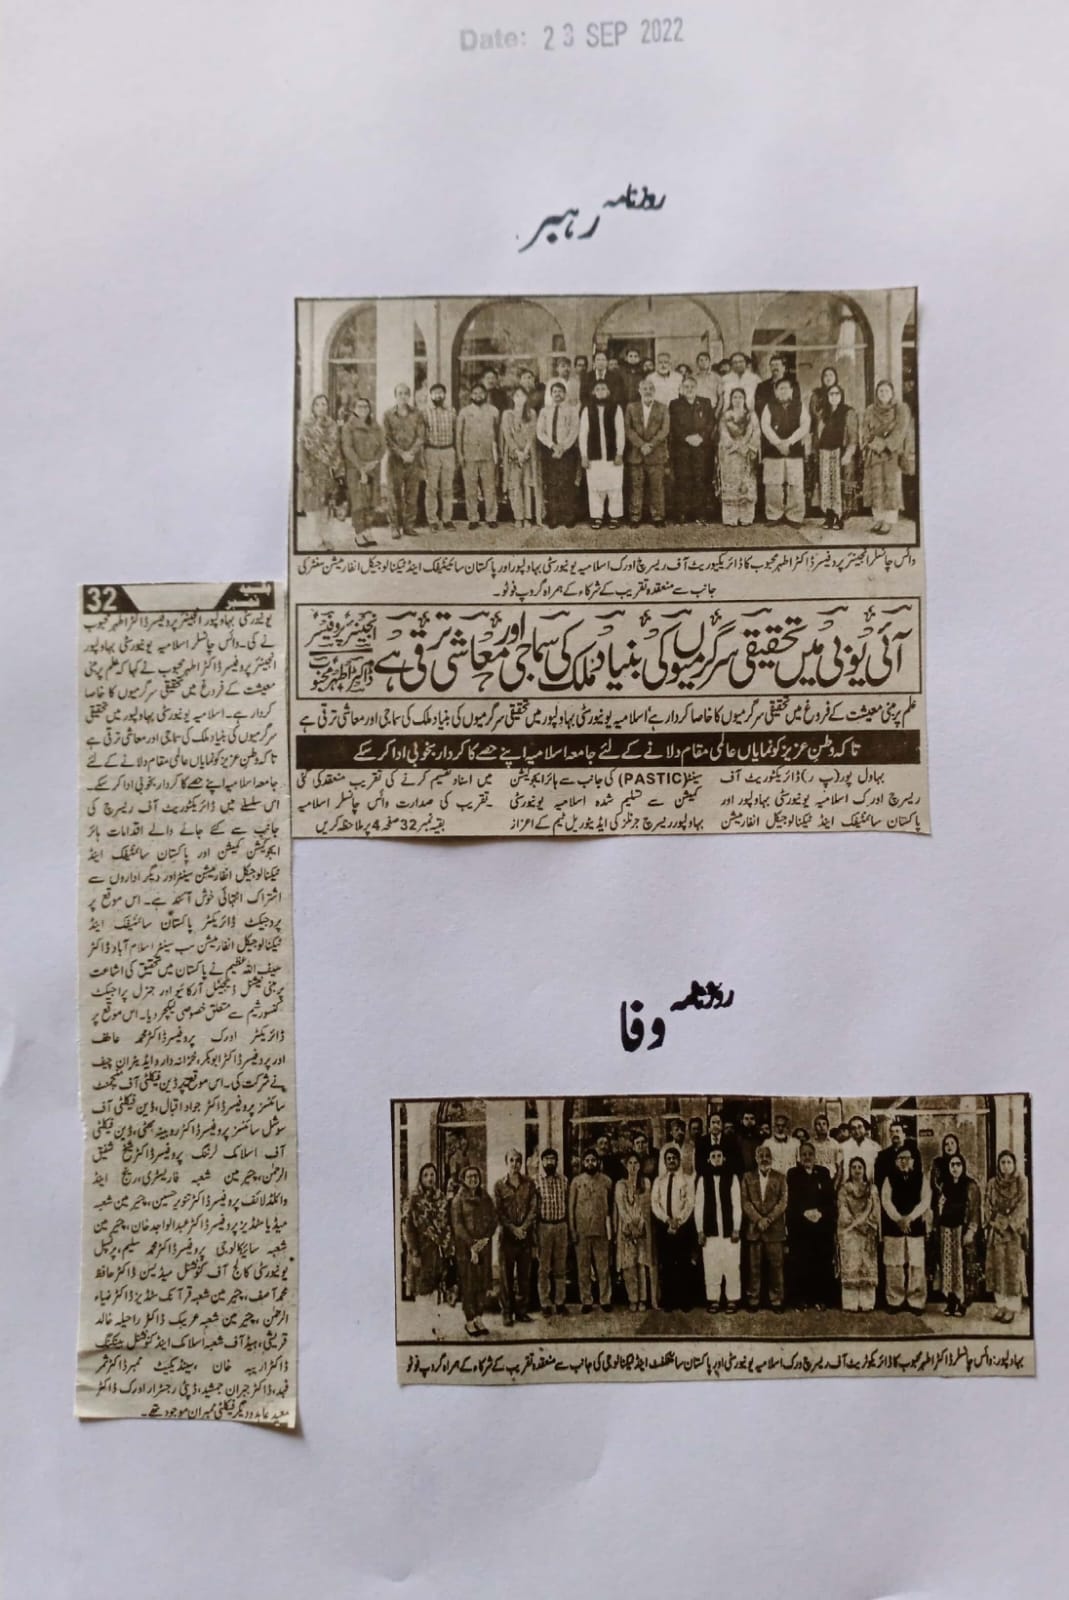 Date: 23 SEP 2022
روزنامہ رہبر
وائس چانسلر انجینئر پروفیسر ڈاکٹر اطہر محبوب کا ڈائریکٹوریٹ آف ریسرچ اورک اسلامیہ یونیورسٹی بہاولپور اور پاکستان سائینٹیفک اینڈ ٹیکنالوجیکل انفارمیشن سنٹر کی
جانب سے منعقدہ تقریب کے شرکاء کے ہمراہ گروپ فوٹو۔
آئی یو بی میں تحقیقی سرگرمیوں کی بنیاد ملک کی سماجی اور معاشی ترقی ہے
انجینئر پروفیسر
ڈاکٹر اطہر محبوب
علم پر مبنی معیشت کے فروغ میں تحقیقی سرگرمیوں کا خاصا کردار ہے، اسلامیہ یونیورسٹی بہاولپور میں تحقیقی سرگرمیوں کی بنیاد ملک کی سماجی اور معاشی ترقی ہے
تاکہ وطن عزیز کو نمایاں عالمی مقام دلانے کے لئے جامعہ اسلامیہ اپنے حصے کا کردار بخوبی ادا کر سکے
بہاول پور (پ ر) ڈائریکٹوریٹ آف
ریسرچ اورک اسلامیہ یونیورسٹی بہاولپور اور
پاکستان سائنٹیفک اینڈ ٹیکنالوجیکل انفارمیشن
سینٹر (PASTIC) کی جانب سے ہائر ایجوکیشن
کمیشن سے تسلیم شدہ اسلامیہ یونیورسٹی
بہاولپور ریسرچ جرنلز کی ایڈیٹوریل ٹیم کے اعزاز
میں اسناد تقسیم کرنے کی تقریب منعقد کی گئی
۔تقریب کی صدارت وائس چانسلر اسلامیہ
بقیہ نمبر 32 صفحہ 4 پر ملاحظہ کریں
بقیہ نمبر 32
یونیورسٹی بہاولپور انجینئر پروفیسر ڈاکٹر اطہر محبوب
نے کی۔ وائس چانسلر اسلامیہ یونیورسٹی بہاولپور
انجینئر پروفیسر ڈاکٹر اطہر محبوب نے کہا کہ علم پر مبنی
معیشت کے فروغ میں تحقیقی سرگرمیوں کا خاصا
کردار ہے۔ اسلامیہ یونیورسٹی بہاولپور میں تحقیقی
سرگرمیوں کی بنیاد ملک کی سماجی اور معاشی ترقی ہے
تاکہ وطن عزیز کو نمایاں عالمی مقام دلانے کے لئے
جامعہ اسلامیہ اپنے حصے کا کردار بخوبی ادا کر سکے۔
اس سلسلے میں ڈائریکٹوریٹ آف ریسرچ کی
جانب سے کئے جانے والے اقدامات ہائر
ایجوکیشن کمیشن اور پاکستان سائنٹیفک اینڈ
ٹیکنالوجیکل انفارمیشن سینٹر اور دیگر اداروں سے
اشتراک انتہائی خوش آئند ہے۔ اس موقع پر
پروجیکٹ ڈائریکٹر پاکستان سائنٹیفک اینڈ
ٹیکنالوجیکل انفارمیشن سب سینٹر اسلام آباد ڈاکٹر
سیف اللہ عظیم نے پاکستان میں تحقیق کی اشاعت
پر مبنی نیشنل ڈیجیٹل آرکائیو اور جنرل پراجیکٹ
کنسورشیم سے متعلق خصوصی لیکچر دیا۔ اس موقع پر
ڈائریکٹر اورک پروفیسر ڈاکٹر محمد عاطف
اور پروفیسر ڈاکٹر ابوبکر، خزانہ دار و ایڈیٹران چیف
نے شرکت کی۔ اس موقع پر ڈین فیکلٹی آف مینجمنٹ
سائنسز پروفیسر ڈاکٹر جواد اقبال، ڈین فیکلٹی آف
سوشل سائنسز پروفیسر ڈاکٹر روبینہ بھٹی، ڈین فیکلٹی
آف اسلامک لرننگ پروفیسر ڈاکٹر شیخ شفیق
الرحمٰن، چیئرمین شعبہ فاریسٹری، رینج اینڈ
وائلڈ لائف پروفیسر ڈاکٹر تنویر حسین، چیئرمین شعبہ
میڈیا سٹڈیز پروفیسر ڈاکٹر عبدالواجد خان، چیئرمین
شعبہ سائیکالوجی پروفیسر ڈاکٹر محمد سلیم، پرنسپل
یونیورسٹی کالج آف کنونشنل میڈیسن ڈاکٹر حافظ
محمد آصف، چیئرمین شعبہ قرآنک سٹڈیز ڈاکٹر ضیاء
الرحمٰن، چیئرمین شعبہ عریبک ڈاکٹر راحیلہ خالد
قریشی، ہیڈ آف شعبہ اسلامک اینڈ کنونشنل بینکنگ
ڈاکٹر اریبہ خان، سینڈیکیٹ ممبر ڈاکٹر ثمر
فہد، ڈاکٹر جبران جمشید، ڈپٹی رجسٹرار اورک ڈاکٹر
معید عابد و دیگر فیکلٹی ممبران موجود تھے۔
روزنامہ وفا
بہاولپور: وائس چانسلر ڈاکٹر اطہر محبوب کا ڈائریکٹوریٹ آف ریسرچ ورک اسلامیہ یونیورسٹی اور پاکستان سائنٹفٹ اینڈ ٹیکنالوجی کی جانب سے منعقدہ تقریب کے شرکاء کے ہمراہ گروپ فوٹو